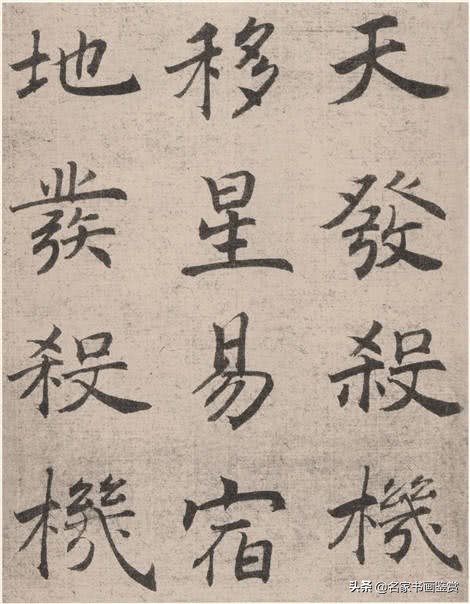 天發殺機
移星易宿
地發殺機
头条 @名家书画鉴赏